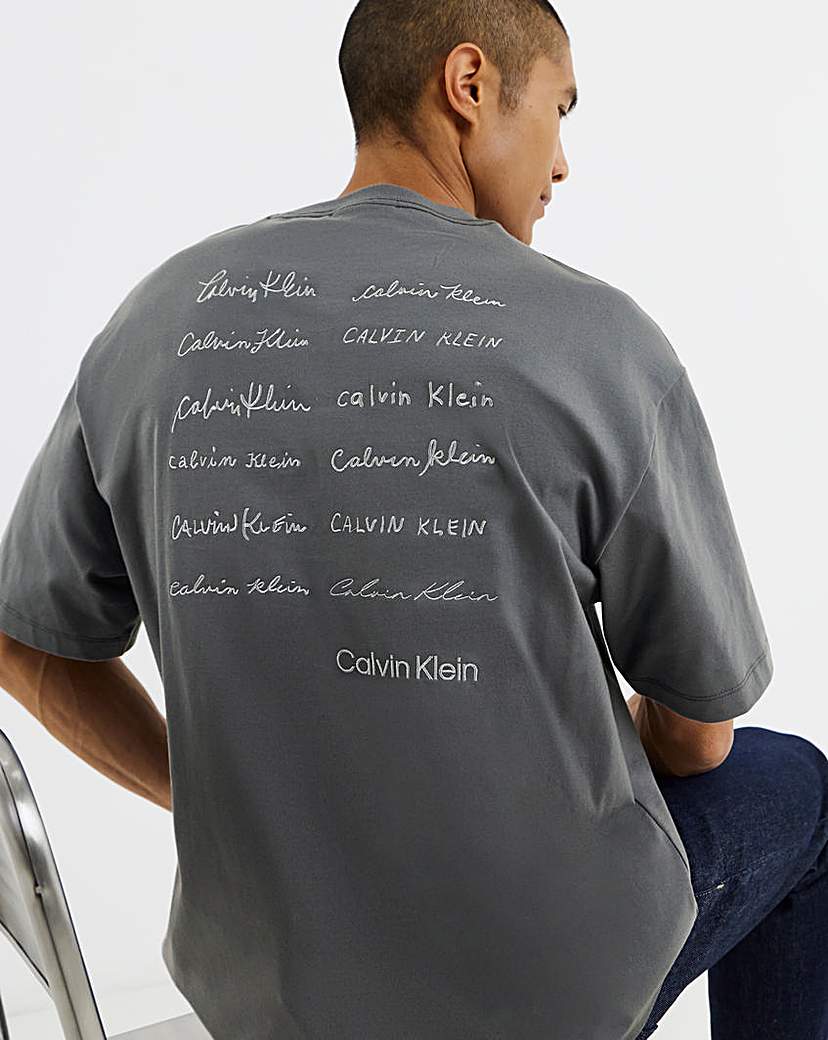 Calvin Klein calvin klein
Calvin Klein CALVIN KLEIN
Calvin Klein calvin Klein
calvin Klein Calvin klein
CALVIN KLEin CALVIN KLEIN
calvin klein Calvin Klein
Calvin Klein